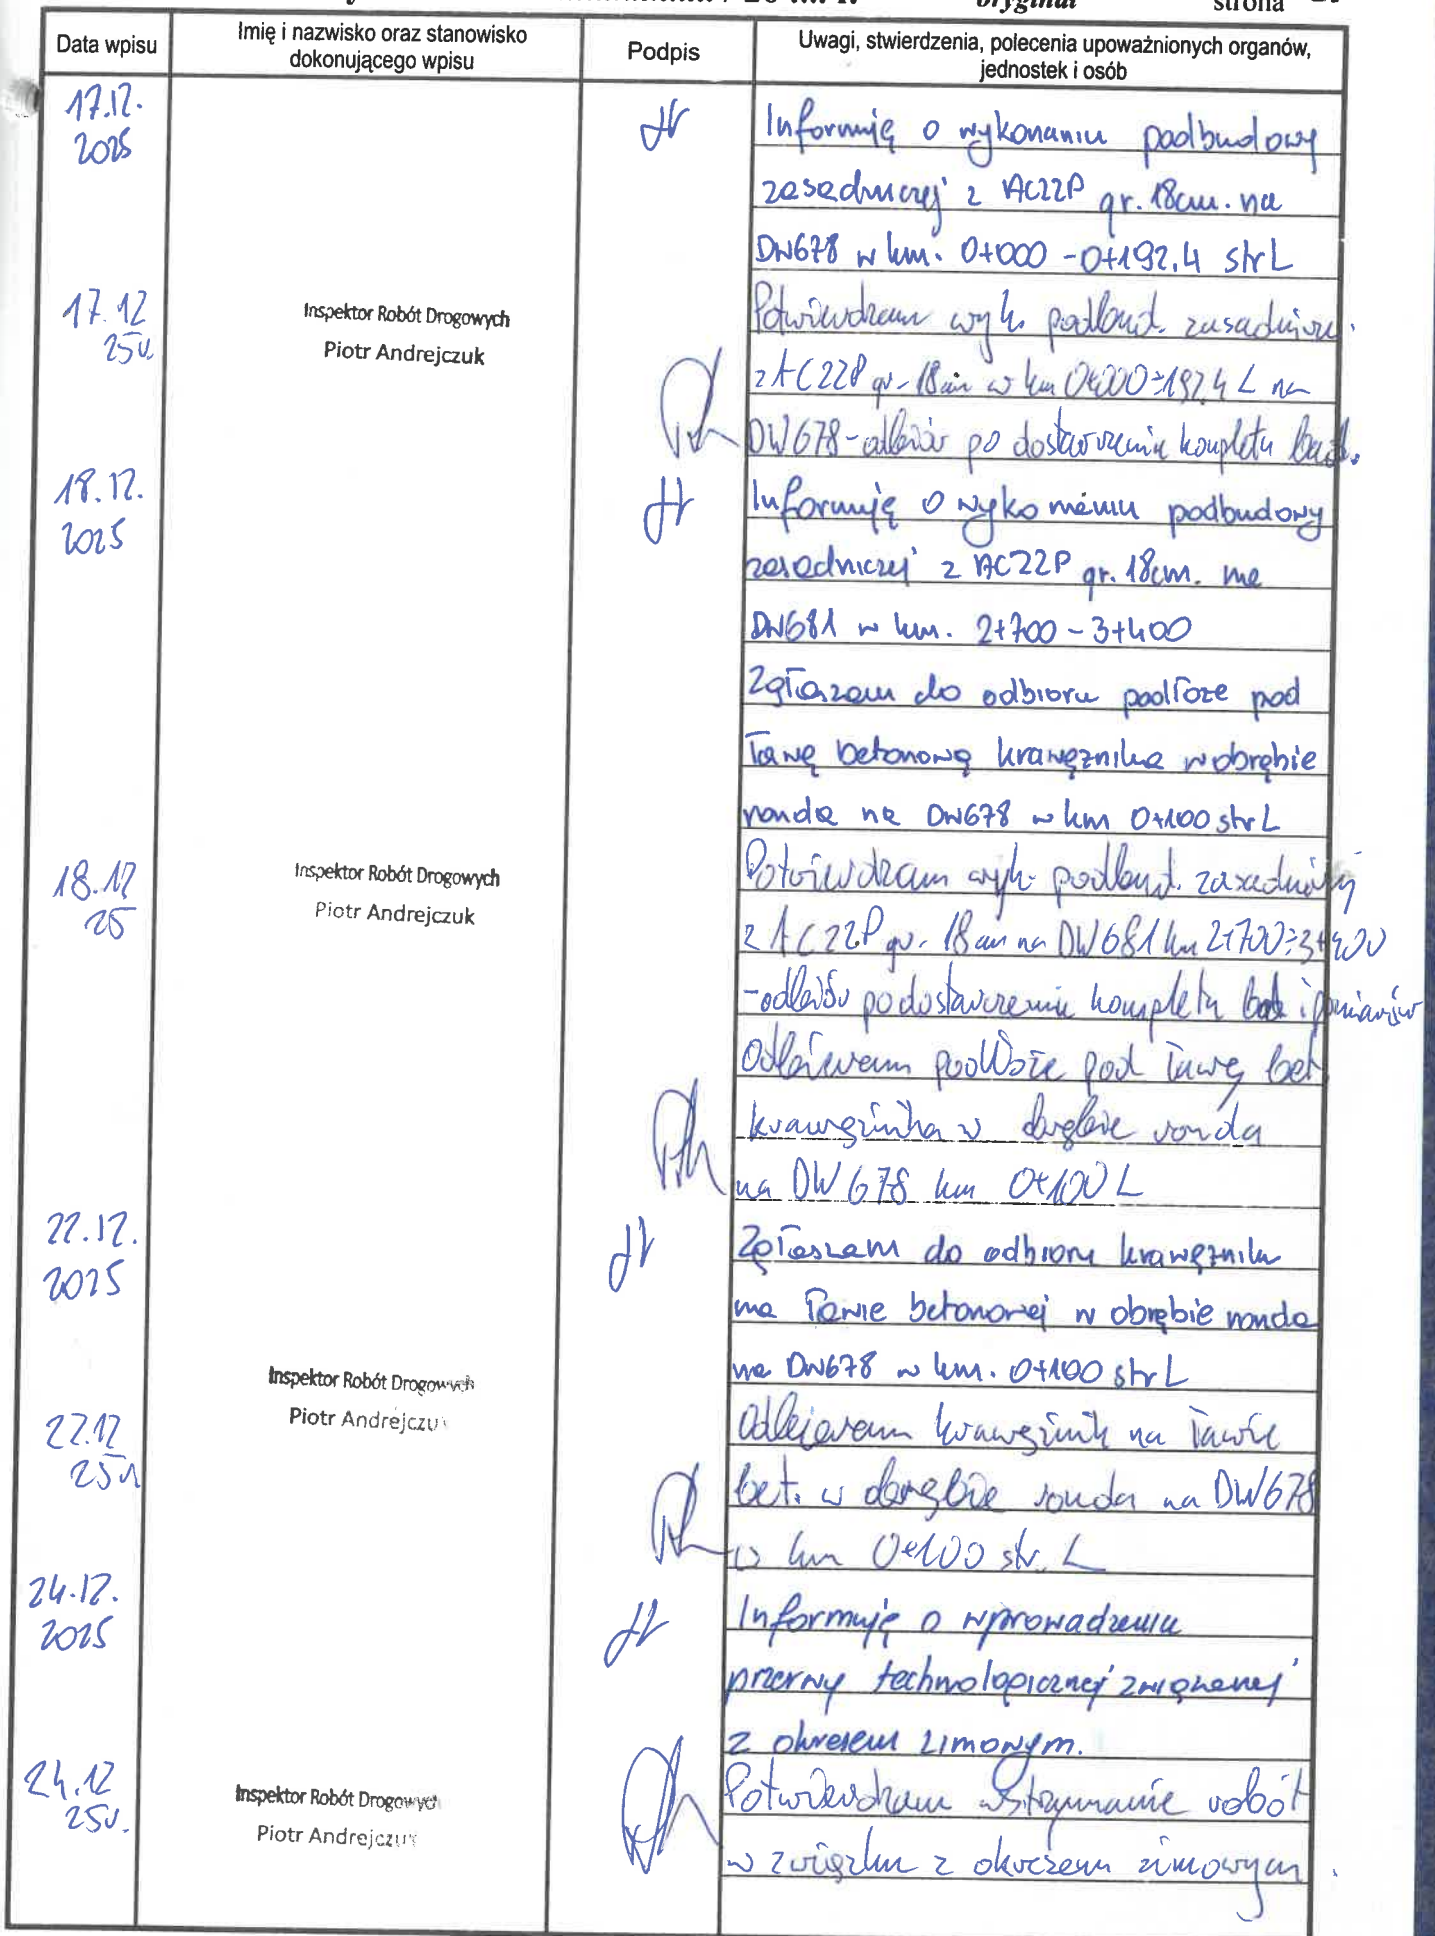 oryginał strona
Data wpisu
Imię i nazwisko oraz stanowisko
dokonującego wpisu
Podpis
Uwagi, stwierdzenia, polecenia upoważnionych organów,
jednostek i osób
17.12.
2025
Informuję o wykonaniu podbudowy
zasadniczej z AC22P gr. 18cm. na
DW678 w km. 0+000 - 0+192,4 str L
17.12
25r.
Inspektor Robót Drogowych
Piotr Andrejczuk
Potwierdzam wyk. podbud. zasadnicz.
z AC22P gr. 18cm w km 0+000÷192,4 L na
DW678 - odbiór po dostarczeniu kompletu bad.
18.12.
2025
Informuję o wykonaniu podbudowy
zasadniczej z AC22P gr. 18cm. na
DW681 w km. 2+700 - 3+400
Zgłaszam do odbioru podłoże pod
ławę betonową krawężnika w obrębie
ronda na DW678 w km 0+100 str L
18.12
25
Inspektor Robót Drogowych
Piotr Andrejczuk
Potwierdzam wyk. podbud. zasadniczej
z AC22P gr. 18cm na DW681 km 2+700÷3+400
- odbiór po dostarczeniu kompletu bad i pomiarów
Odbieram podłoże pod ławę bet
krawężnika w obrębie ronda
na DW678 km 0+100 L
22.12.
2025
Zgłaszam do odbioru krawężnik
na ławie betonowej w obrębie ronda
na DW678 w km. 0+100 str L
22.12
25r
Inspektor Robót Drogowych
Piotr Andrejczuk
Odbieram krawężnik na ławie
bet. w obrębie ronda na DW678
w km 0+100 str. L
24.12.
2025
Informuję o wprowadzeniu
przerwy technologicznej związanej
z okresem zimowym.
24.12
25r.
Inspektor Robót Drogowych
Piotr Andrejczuk
Potwierdzam wstrzymanie robót
w związku z okresem zimowym.